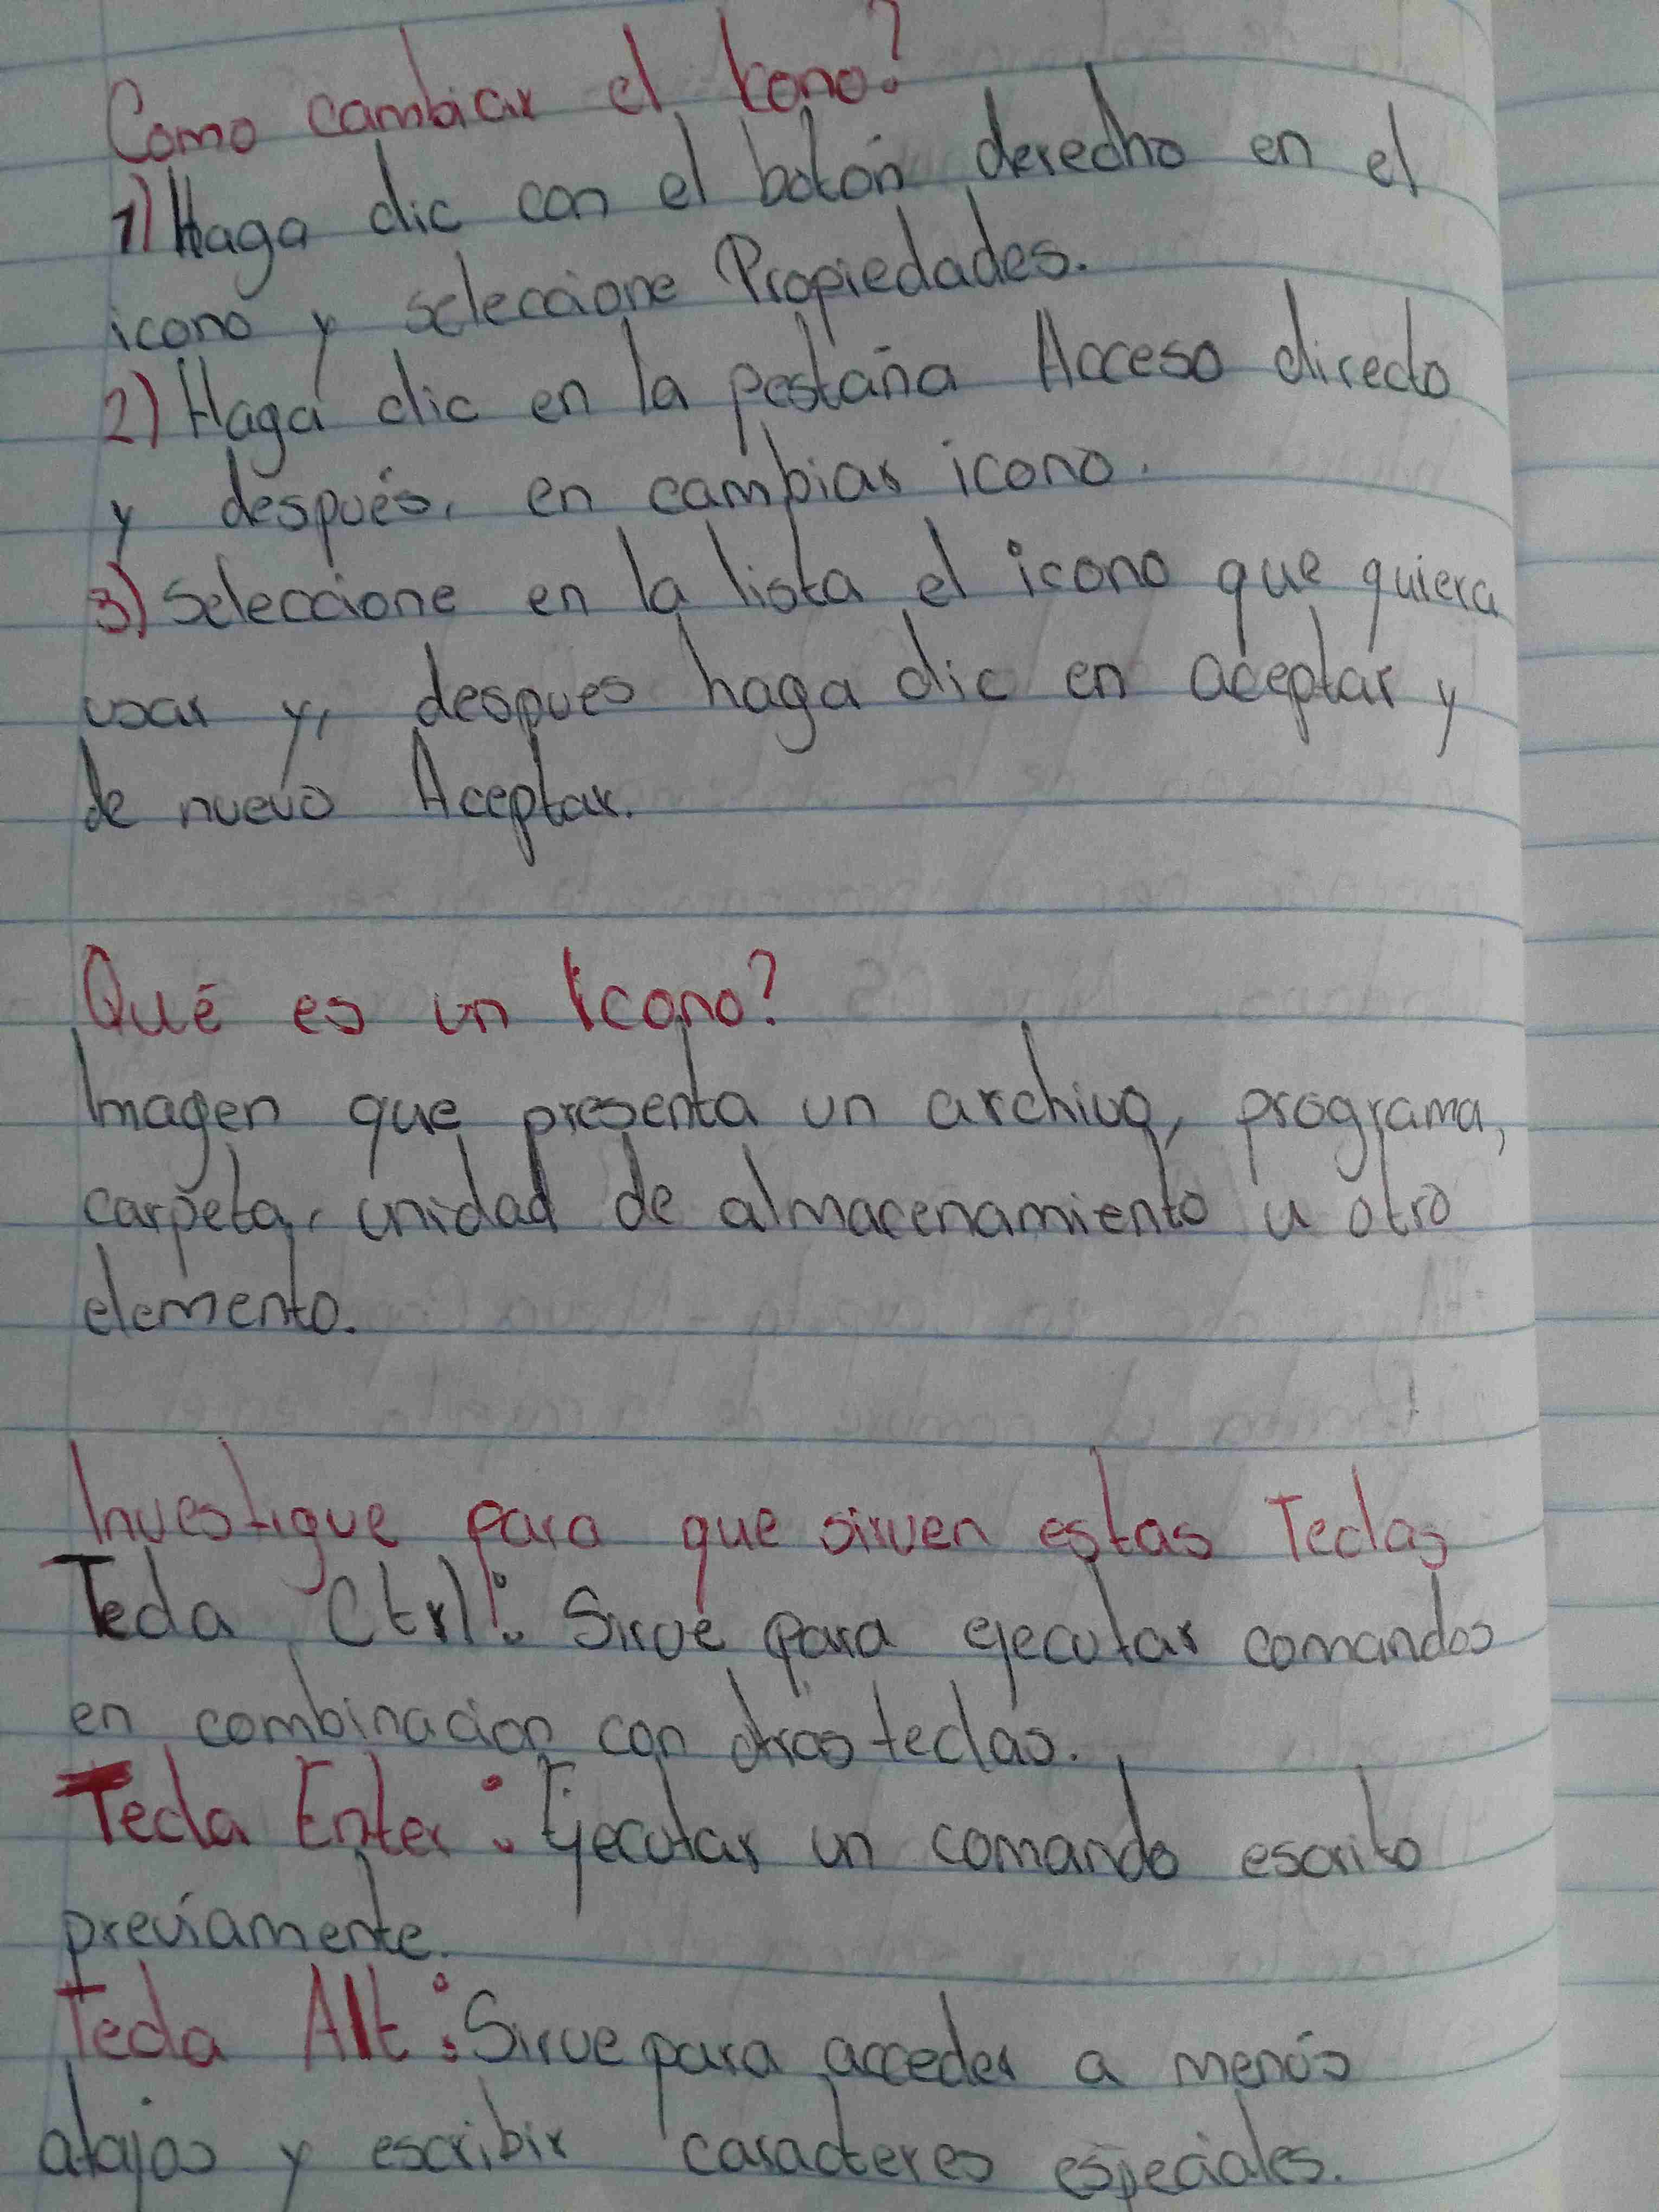 Como cambiar el Icono?
1) Haga clic con el botón derecho en el
icono y seleccione Propiedades.
2) Haga clic en la pestaña Acceso directo
y después, en cambiar icono.
3) seleccione en la lista el icono que quiera
usar y, despues haga clic en aceptar y
de nuevo Aceptar.
Qué es un Icono?
Imagen que presenta un archivo, programa,
carpeta, unidad de almacenamiento u otro
elemento.
Investigue para que sirven estas Teclas
Tecla Ctrl: Sirve para ejecutar comandos
en combinacion con otras teclas.
Tecla Enter: Ejecutar un comando escrito
previamente.
Tecla Alt: Sirve para acceder a menús
atajos y escribir caracteres especiales.